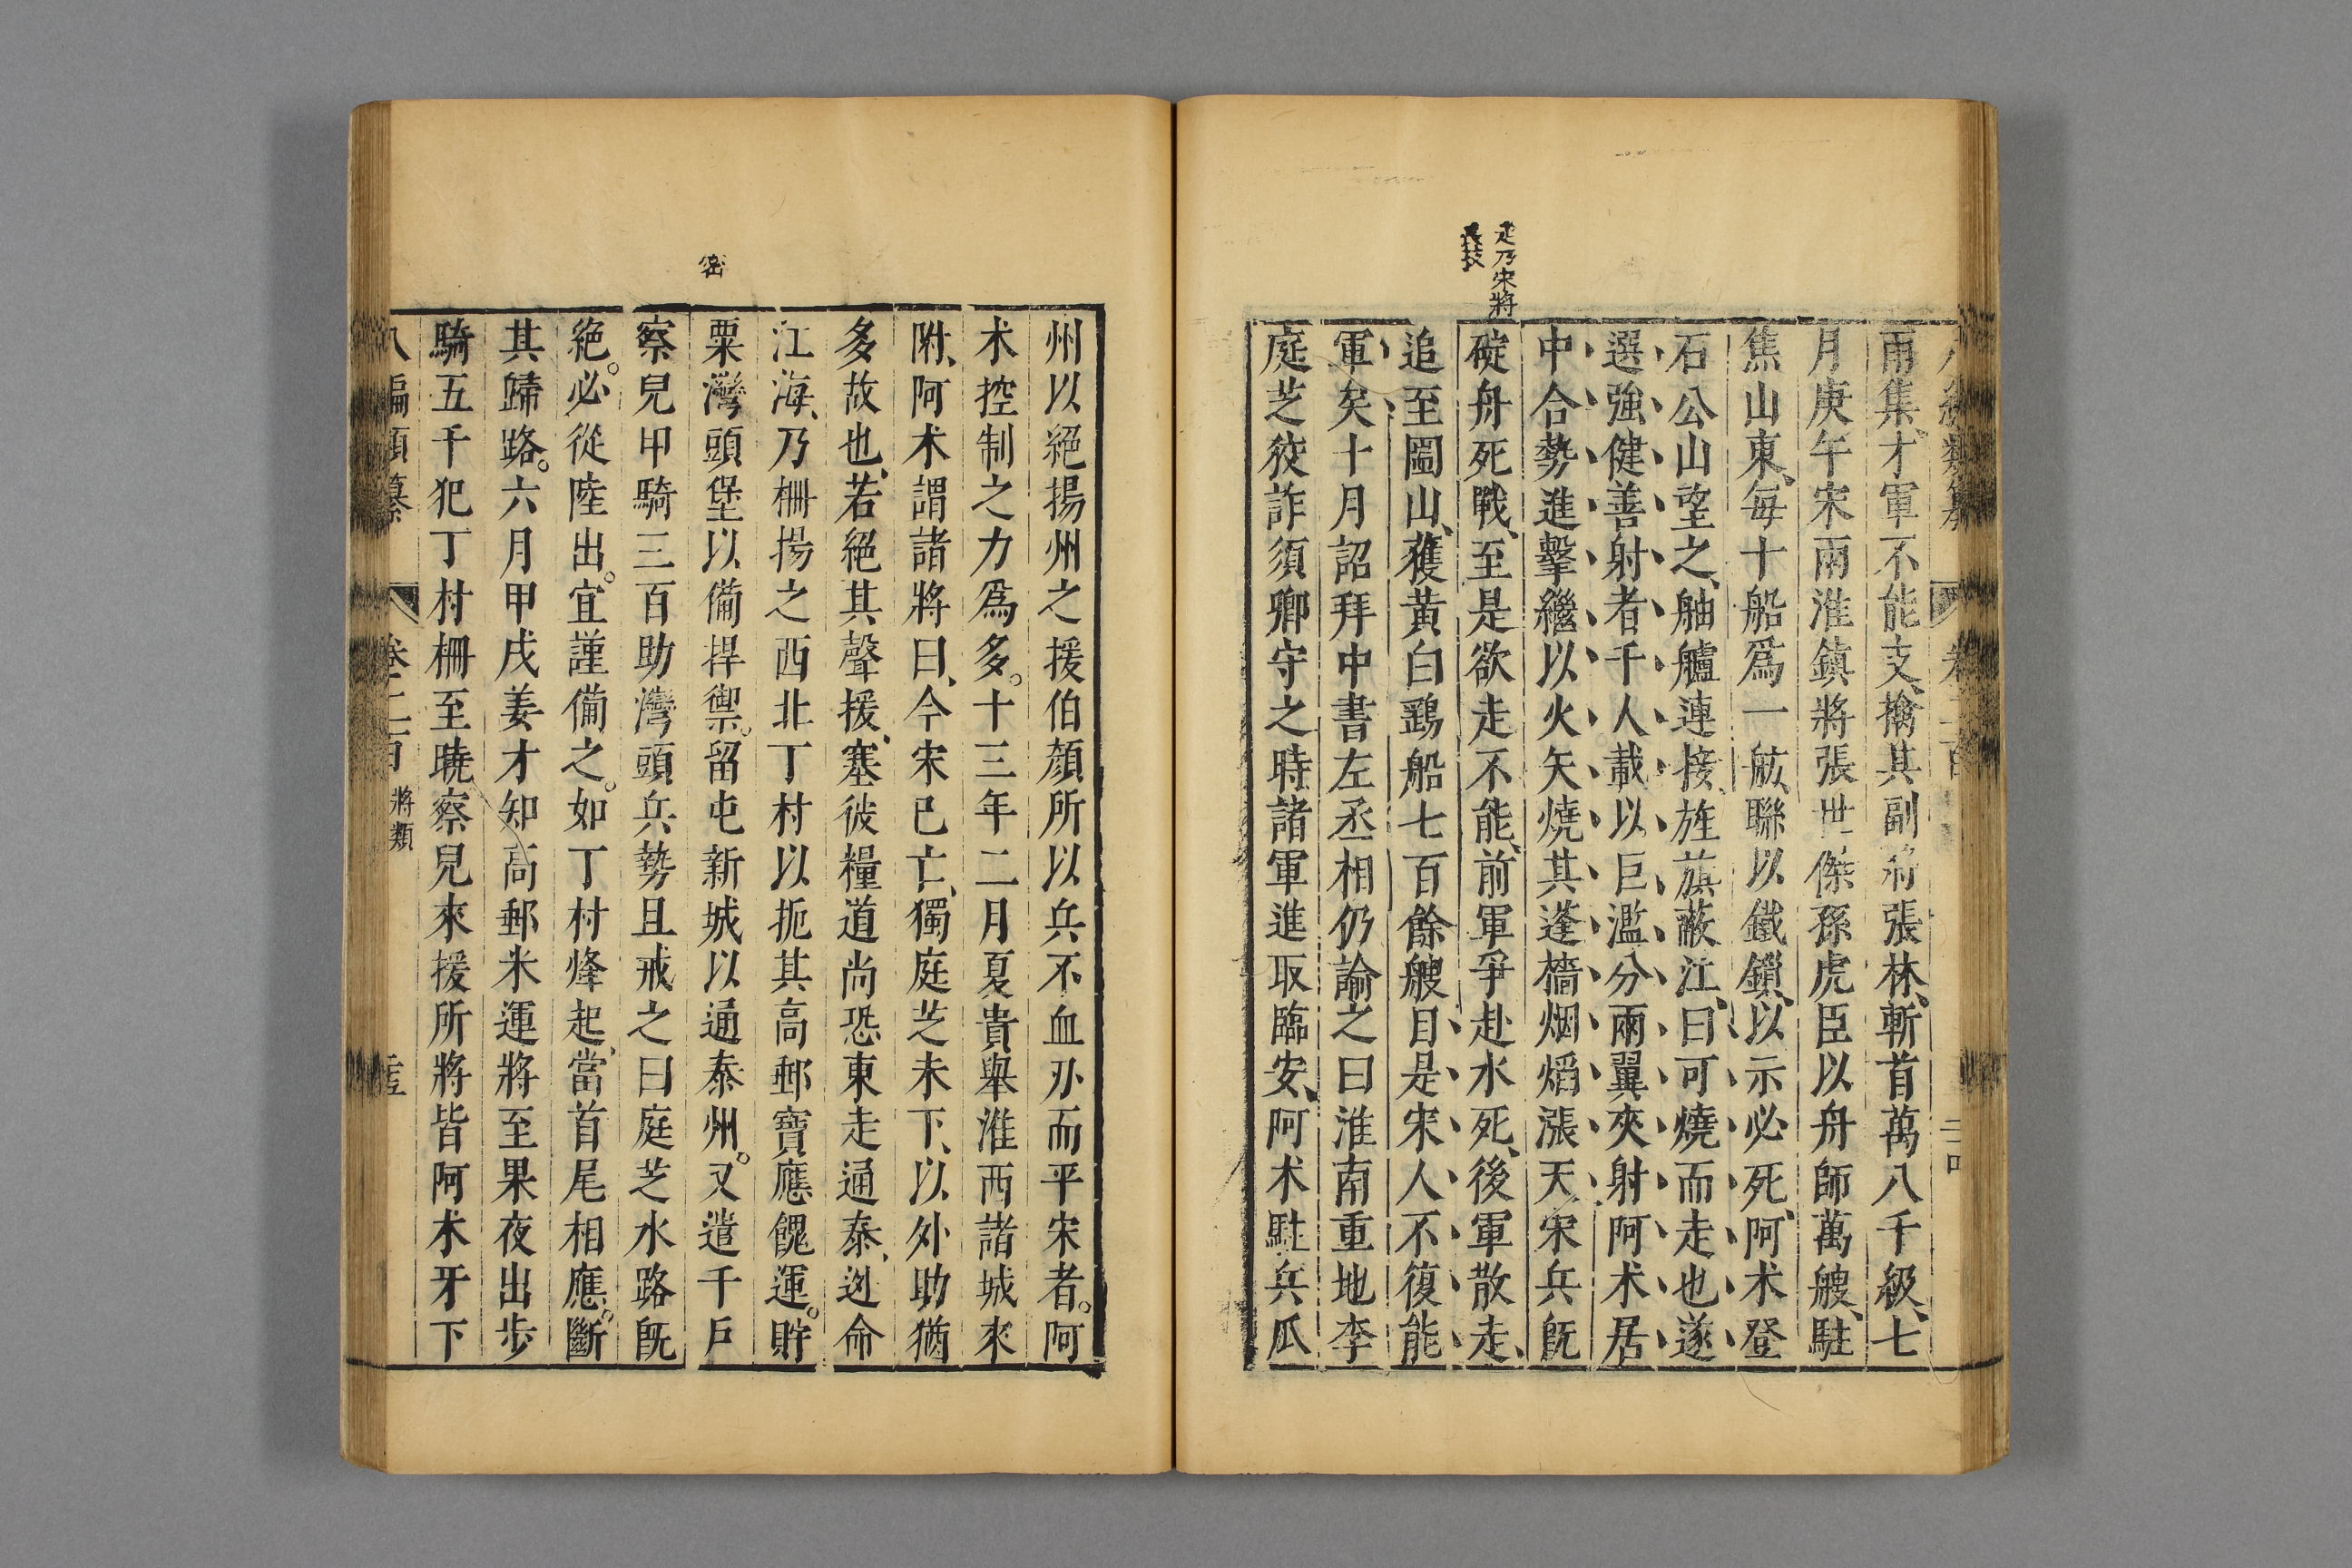 雨集才軍不能支擒其副將張林斬首萬八千級七
月庚午宋兩淮鎮將張世傑孫虎臣以舟師萬艘駐
焦山東每十船爲一舫聯以鐵鎖以示必死阿术登
石公山望之舳艫連接旌旗蔽江曰可燒而走也遂
選強健善射者千人載以巨濫分兩翼夾射阿术居
中合勢進擊繼以火矢燒其蓬檣烟熖漲天宋兵旣
是乃宋將
長技
碇舟死戰至是欲走不能前軍爭赴水死後軍散走
追至圌山獲黃白鷂船七百餘艘自是宋人不復能
軍矣十月詔拜中書左丞相仍諭之曰淮南重地李
庭芝狡詐須卿守之時諸軍進取臨安阿术駐兵瓜
州以絕揚州之援伯顏所以兵不血刃而平宋者。阿
术控制之力爲多。十三年二月夏貴舉淮西諸城來
附阿术謂諸將曰今宋已亡獨庭芝未下以外助猶
多故也若絕其聲援塞彼糧道尚恐東走通泰逃命
江海乃柵揚之西北丁村以扼其高郵寶應餽運。貯
密
粟灣頭堡以備捍禦。留屯新城以通泰州。又遣千戶
察兒甲騎三百助灣頭兵勢且戒之曰庭芝水路旣
絕。必從陸出。宜謹備之。如丁村烽起當首尾相應。斷
其歸路。六月甲戌姜才知高郵米運將至果夜出步
騎五千犯丁村柵至曉察兒來援所將皆阿术牙下
八編類纂 卷二百 將類